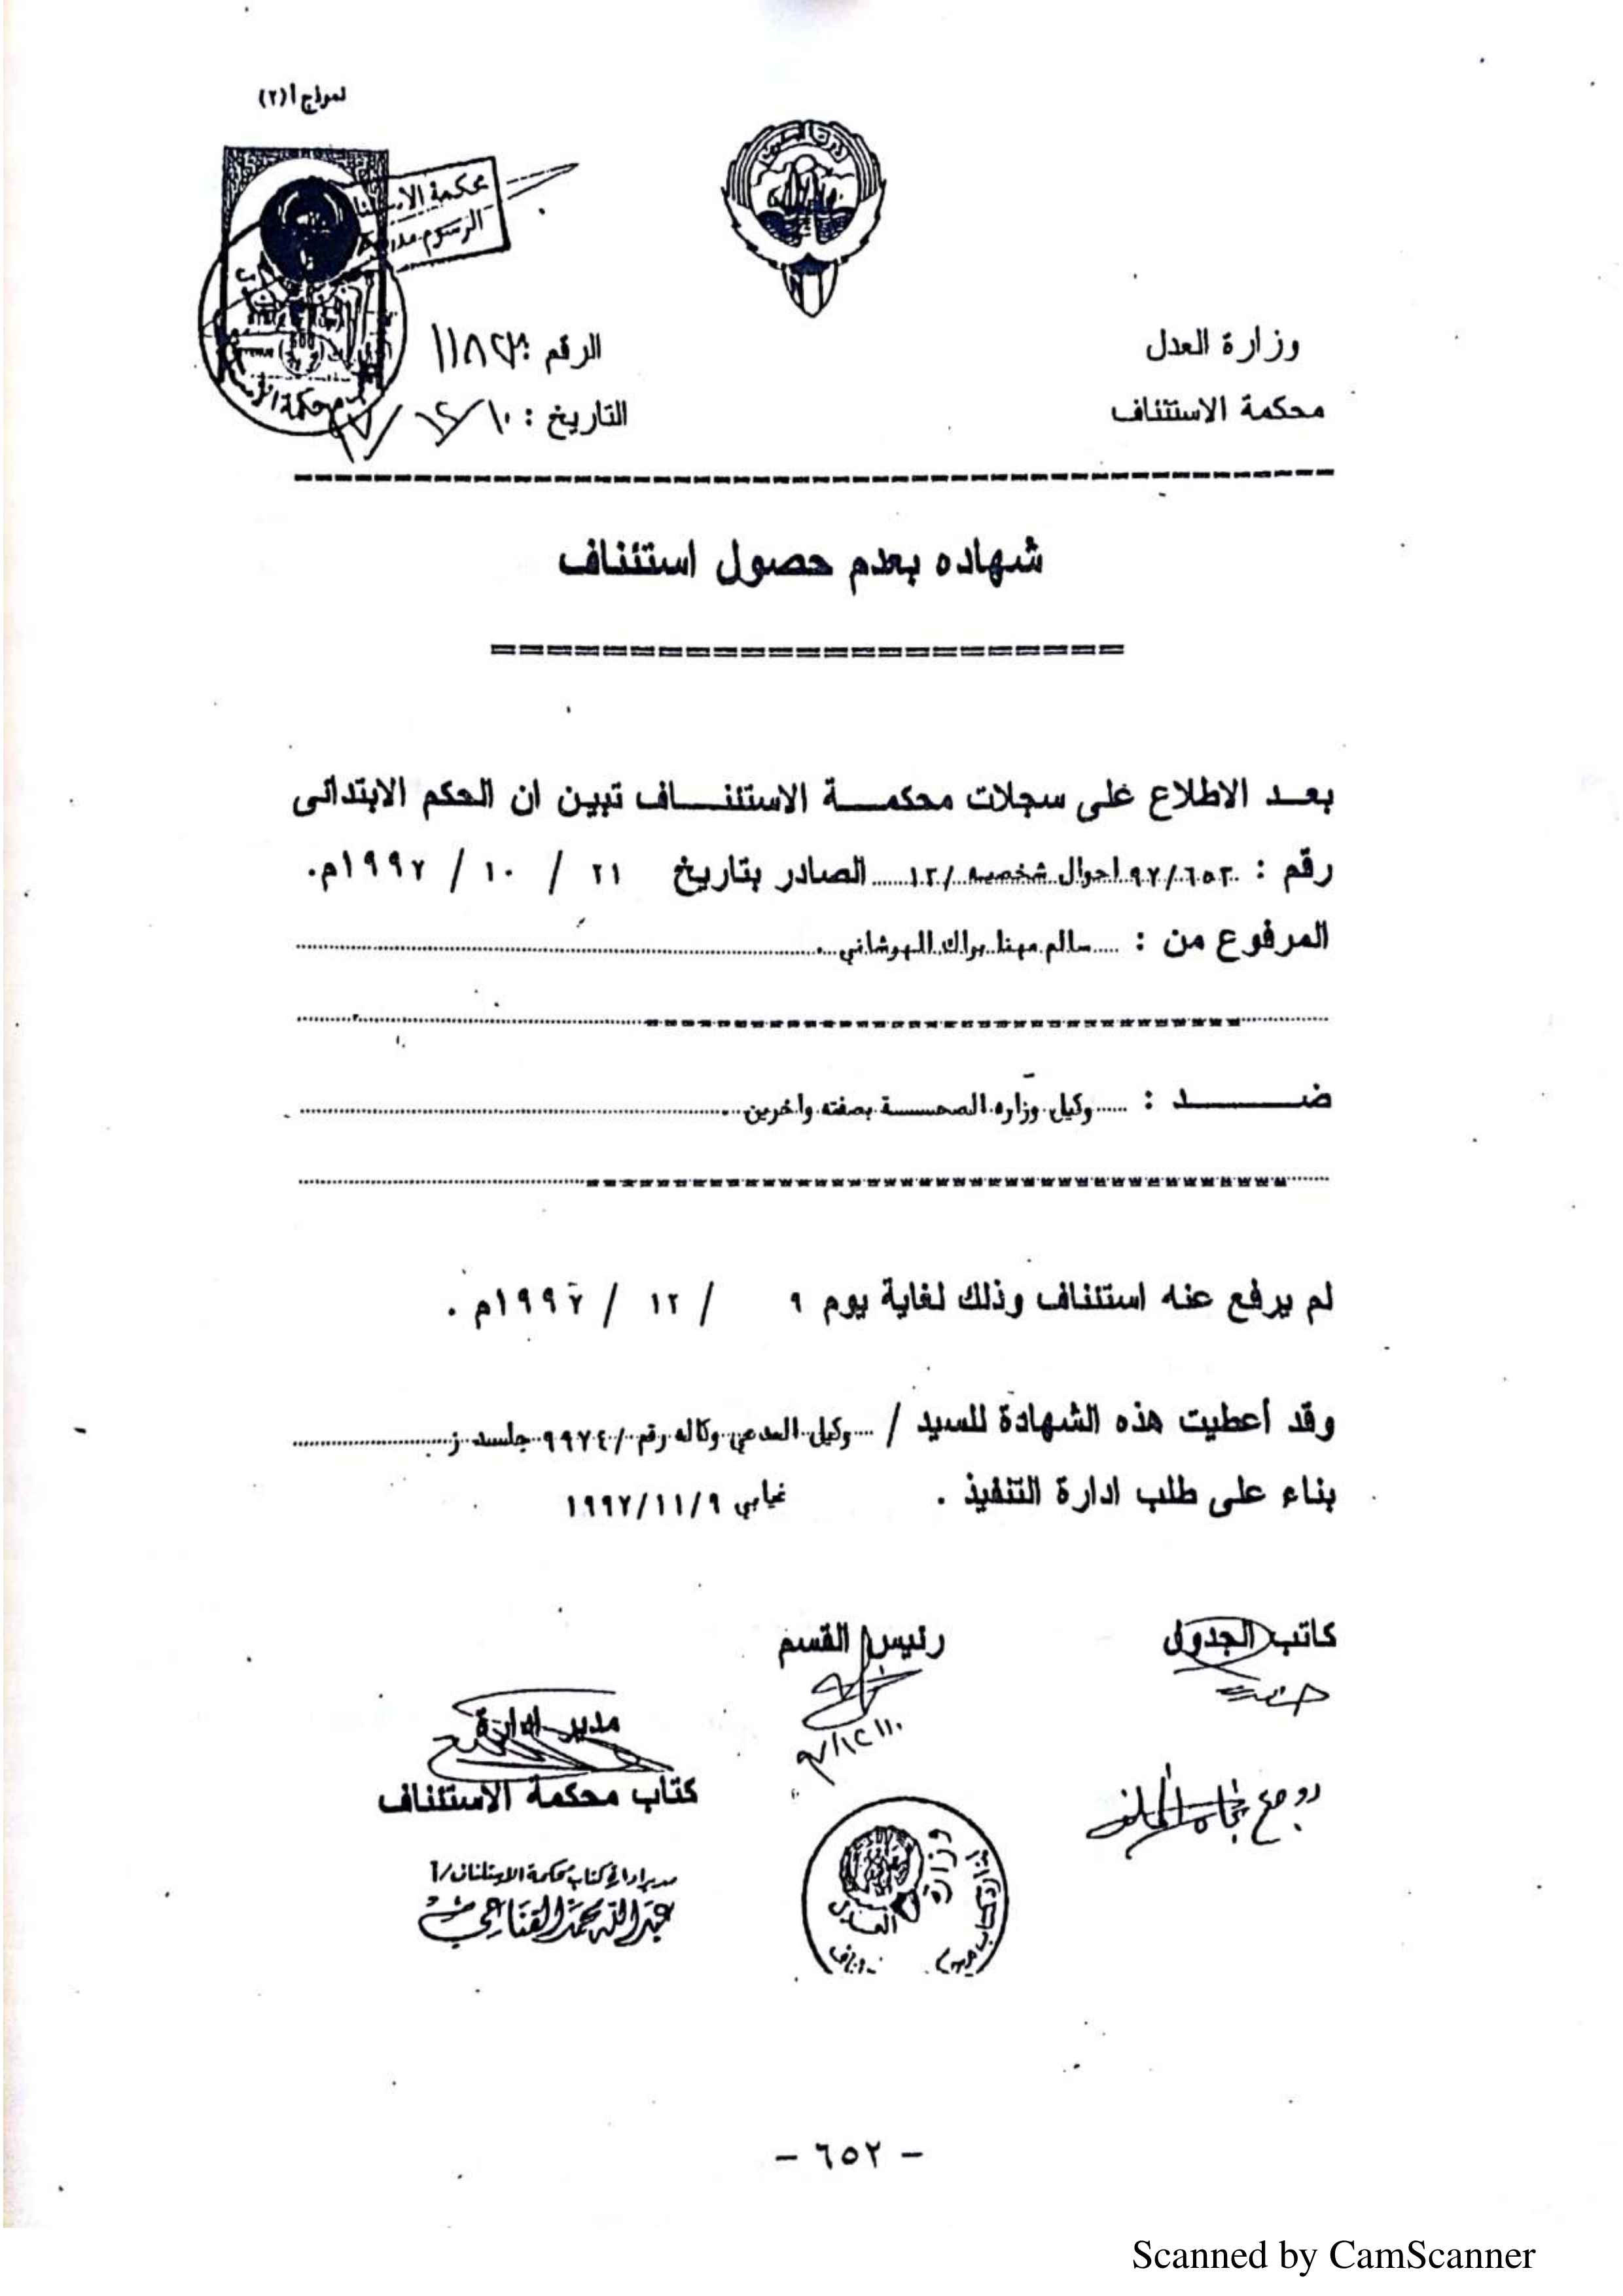 نموذج أ (٢)
محكمة الاستئناف
الرسوم
وزارة العدل
الرقم :
محكمة الاستئناف
التاريخ : ١٠/١٢/٩٧
شهاده بعدم حصول استئناف
بعد الاطلاع على سجلات محكمة الاستئناف تبين ان الحكم الابتدائى
رقم : ٩٧/٦٥٢ احوال شخصيه /١٢ الصادر بتاريخ ٢١ / ١٠ / ١٩٩٧م.
المرفوع من : سالم مهنا براك الهوشاني .
ضد : وكيل وزاره الصحة بصفته واخرين .
لم يرفع عنه استئناف وذلك لغاية يوم ٩ / ١٢ / ١٩٩٧م .
وقد أعطيت هذه الشهادة للسيد / وكيل المدعي وكاله رقم /٩٩٧٤ جلسه ز
بناء على طلب ادارة التنفيذ . غيابي ١٩٩٧/١١/٩
كاتب الجدول
رئيس القسم
مدير ادارة
كتاب محكمة الاستئناف
مدير ادارة كتاب محكمة الاستئناف/أ
عبدالله محمد
وزارة العدل
- ٦٥٢ -
Scanned by CamScanner